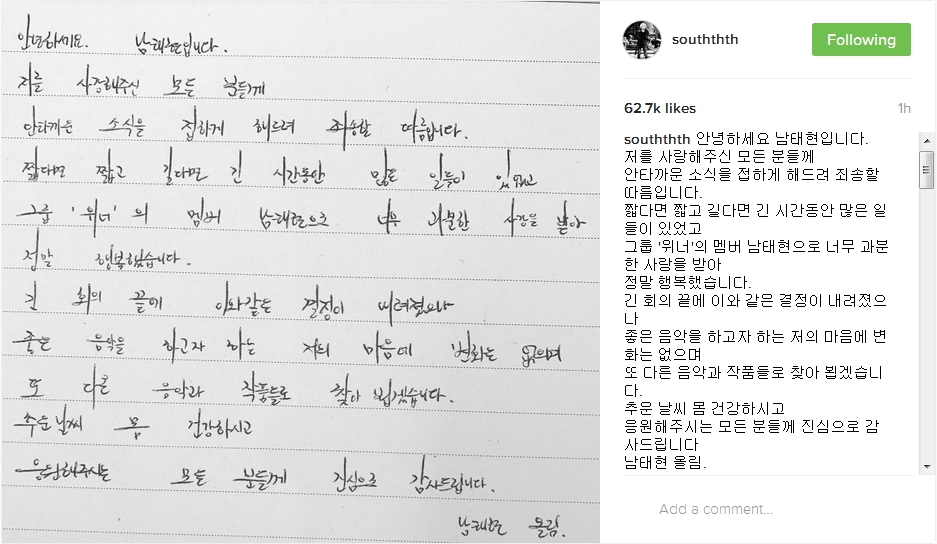 안녕하세요. 남태현입니다.
저를 사랑해주신 모든 분들께
안타까운 소식을 접하게 해드려 죄송할 따름입니다.
짧다면 짧고 길다면 긴 시간동안 많은 일들이 있었고
그룹 '위너'의 멤버 남태현으로 너무 과분한 사랑을 받아
정말 행복했습니다.
긴 회의 끝에 이와같은 결정이 내려졌으나
좋은 음악을 하고자 하는 저의 마음에 변화는 없으며
또 다른 음악과 작품들로 찾아 뵙겠습니다.
추운날씨 몸 건강하시고
응원해주시는 모든 분들께 진심으로 감사드립니다.
남태현 올림.
southhthth
Following
62.7k likes
1h
southhthth 안녕하세요 남태현입니다.
저를 사랑해주신 모든 분들께
안타까운 소식을 접하게 해드려 죄송할
따름입니다.
짧다면 짧고 길다면 긴 시간동안 많은 일
들이 있었고
그룹 '위너'의 멤버 남태현으로 너무 과분
한 사랑을 받아
정말 행복했습니다.
긴 회의 끝에 이와 같은 결정이 내려졌으
나
좋은 음악을 하고자 하는 저의 마음에 변
화는 없으며
또 다른 음악과 작품들로 찾아 뵙겠습니
다.
추운 날씨 몸 건강하시고
응원해주시는 모든 분들께 진심으로 감
사드립니다
남태현 올림.
Add a comment...